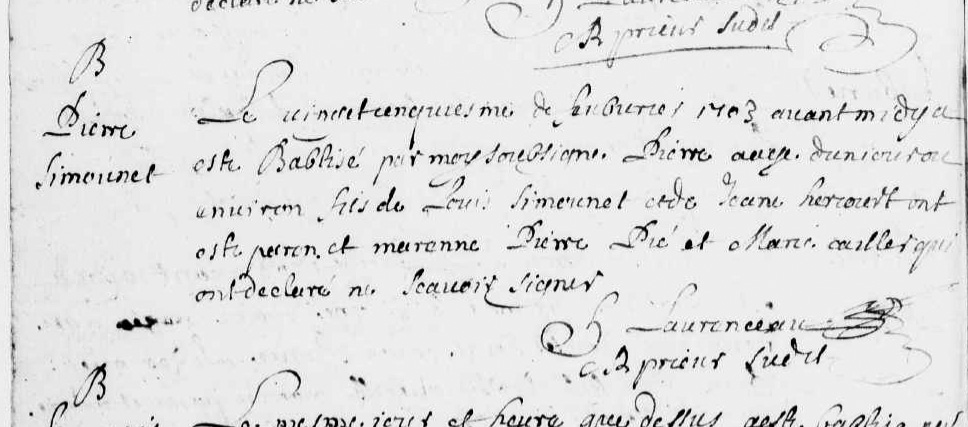 declaré ne
R prieur Sudit
B
Pierre
Simounet
Le vinctcenquiesme de feuburier 1703 auant midy a
esté Babtisé par moy soubsigné Pierre aagé dun iour ou
enuiron fils de Louis Simounet et de Jeane hercouet ont
esté peron et marenne Pierre Pié et Marie cailler qui
ont declaré ne scauoir signer
Laurenceau
R prieur Sudit
B
Le mesme iour et heure que dessus